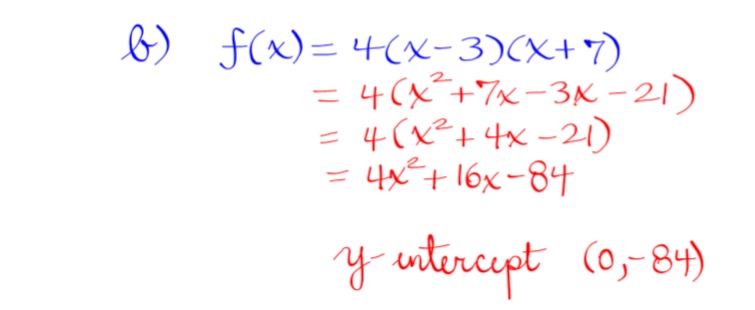 b) f(x) = 4(x-3)(x+7)
= 4(x²+7x-3x-21)
= 4(x²+4x-21)
= 4x²+16x-84
y-intercept (0,-84)